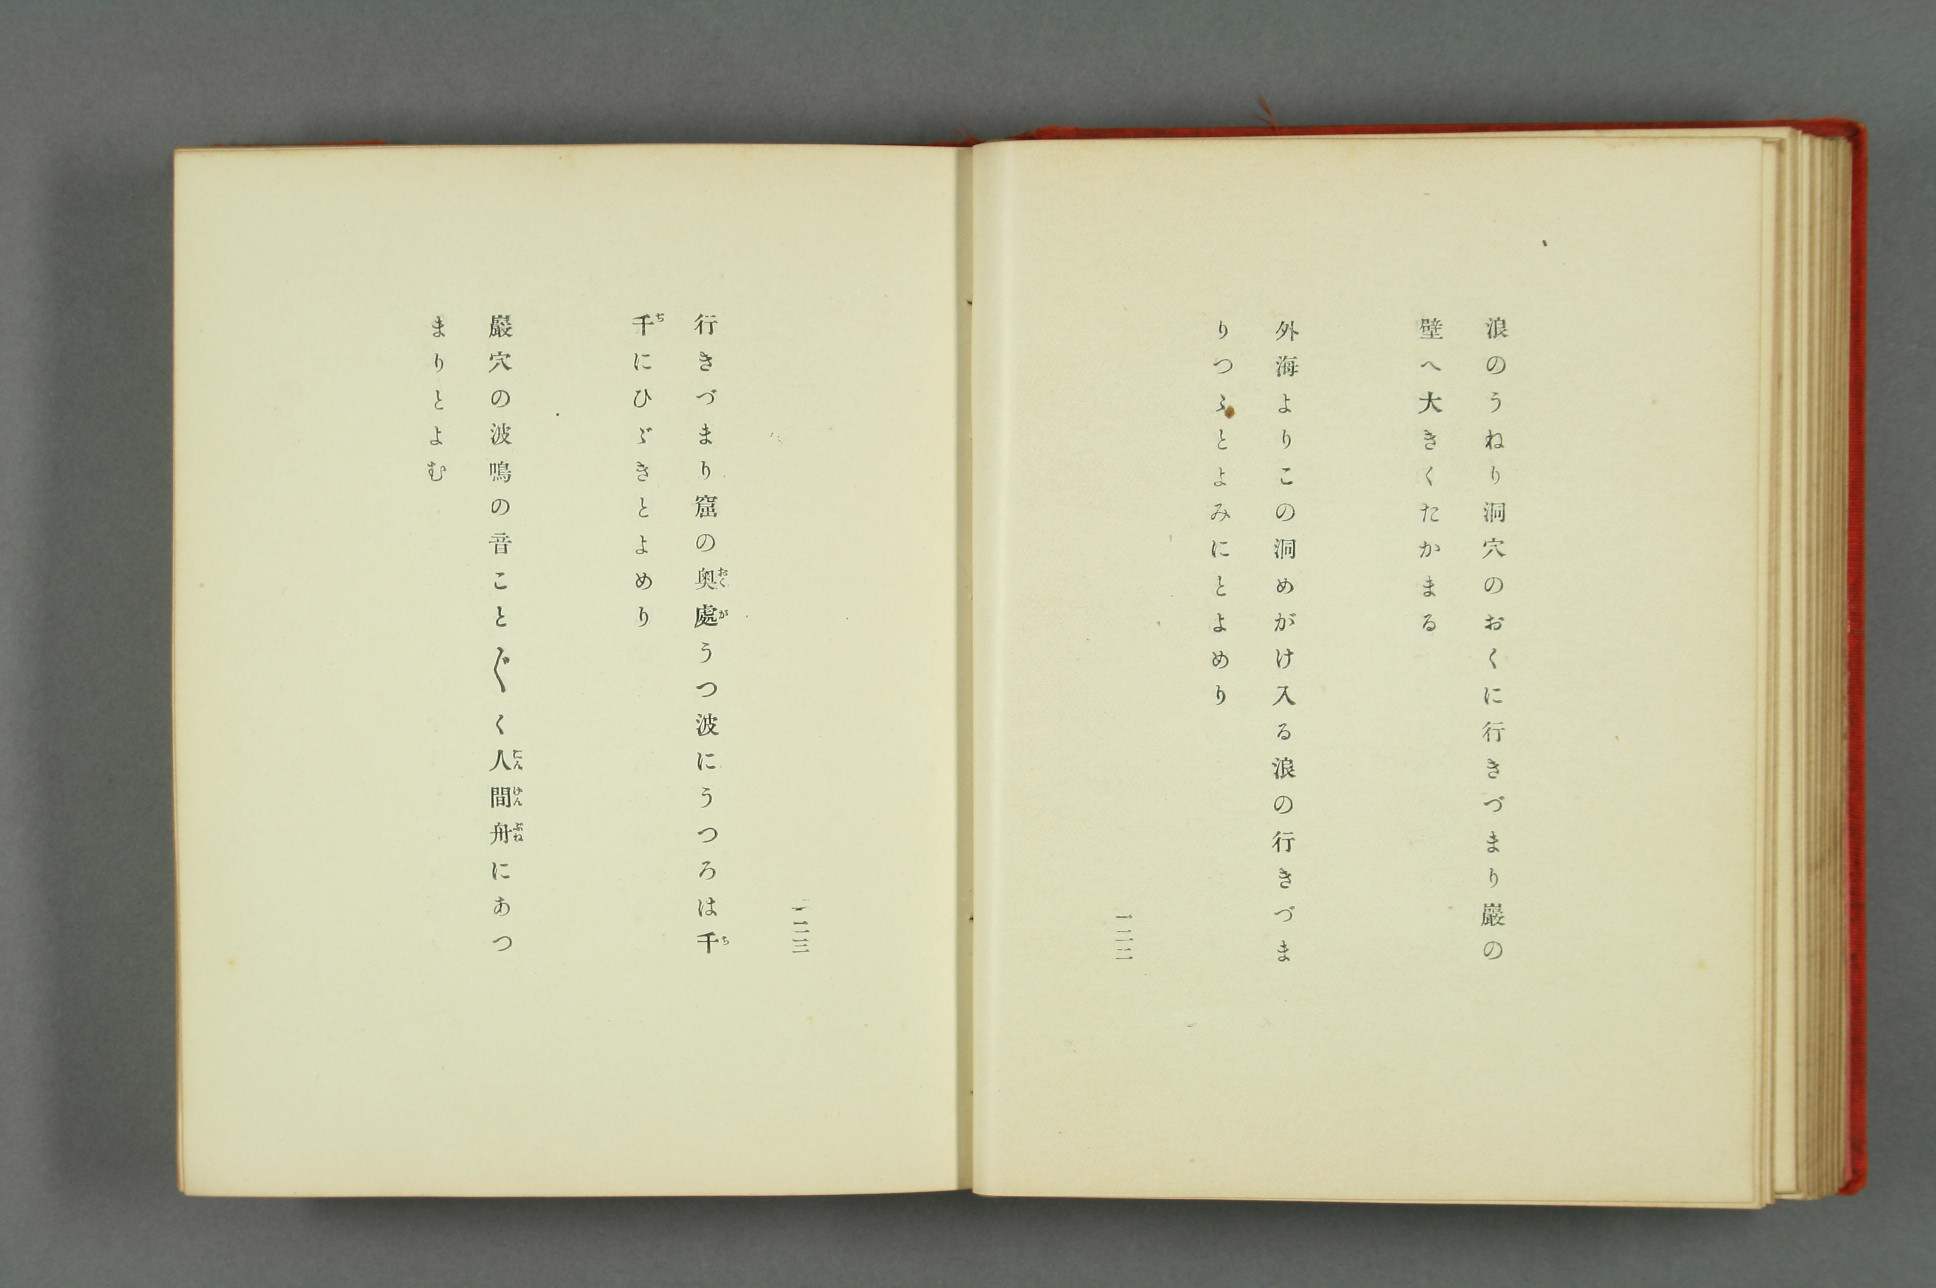 浪のうねり洞穴のおくに行きづまり巖の
壁へ大きくたかまる
外海よりこの洞めがけ入る浪の行きづま
りつゝとよみにとよめり
一二二
一二三
行きづまり窟の奧處うつ波にうつろは千
千にひゞきとよめり
巖穴の波鳴の音こと〴〵く人間舟にあつ
まりとよむ